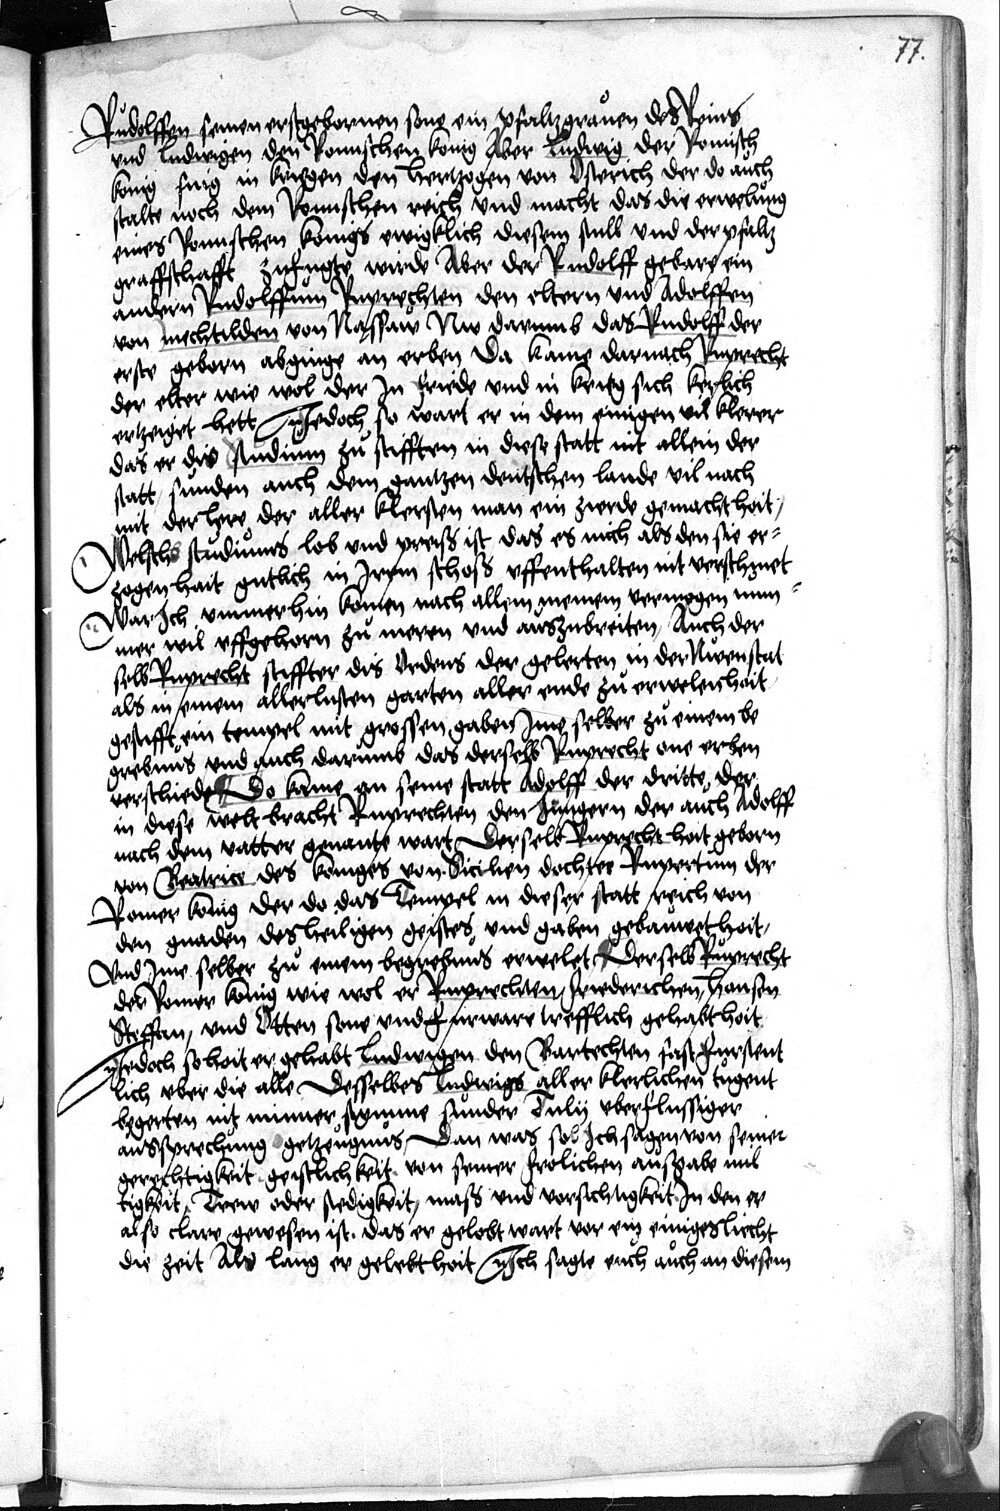 77.
Rudolffen seinen erstgebornen sone ein pfaltzgrauen des Reins
vnd Ludwigen den Romischen konig Aber Ludwig der Romisch
konig fing in kriegen den hertzogen von Osterich der do auch
stalte noch dem Romischen reich vnd macht das die erwelung
eines Romischen konigs ewigklich diesem stull vnd der pfaltz
graffschafft zufugte wurde Aber der Rudolff gebare ein
andern Rudolffum Ruprechten den eltern vnd Adolffen
von mechtilden von Nassaw Nw darumb das Rudolff der
erste geborn abginge an erben Da kame darnach Ruprecht
der elter wie wol der In friede vnd in krieg sich kerlich
ertzeiget hett Jedoch so wart er in dem einigen vil klerer
das er dis studium zu stifften in diese statt nit allein der
statt sunden auch dem gantzen deutschen lande vil nach
mit der here der aller klersten man ein zierde gemacht hoit
Welchs studiums lob vnd preiß ist das es mich als den sie er-
zogen hait gutlich in Irem schoß vffenthalten nit verschmet
War Ich ymmerhin komen nach allem meinem vermogen nym-
mer wil vffgehorn zu meren vnd außzubreiten Auch der
selb Ruprecht stiffter dis Ordens der gelerten in der Nuwenstat
als in einem allerlusten garten aller ende zu erwelen hoit
gestifft ein tempel mit grossen gaben Ime selber zu einem be
grebnus vnd auch darumb das derselb Ruprecht one erben
verschiede Do kame an seine statt Adolff der dritte der
in diese welt bracht Ruprechten den Jungern der auch Adolff
nach dem vatter genante wart Derselb Ruprecht hoit geborn
von Beatrice des koniges von Sicilien dochter Rupertum der
Romer konig der do das Tempel in dieser statt reich von
den gnaden des heiligen geistes vnd gaben gebauwet hoit
Vnd Ime selber zu einem begrebnus erwelet Derselb Ruprecht
der Romer konig wie wol er Ruprechten friederichen Hansen
Steffan vnd Otten sone vnd furware trefflich gehabt hoit
Jedoch so hoit er gehabt Ludwigen den Bartechten fast furstent
lich vber die alle Desselbes Ludwigs aller klerlichen tugent
begerten nit minner stymme sunder Tulij vberflussiger
aussprechung getzeugnus Dan was sol Ich sagen von seiner
gerechtigkeit geistlichkeit von seiner frolichen außgabe mil
tigkeit Trew oder stedigkeit maß vnd vorsichtigkeit In den er
also clare gewesen ist das er gelobt wart vor ein einiges liecht
die zeit Als lang er gelebt hoit Ich sagte euch auch an diesem